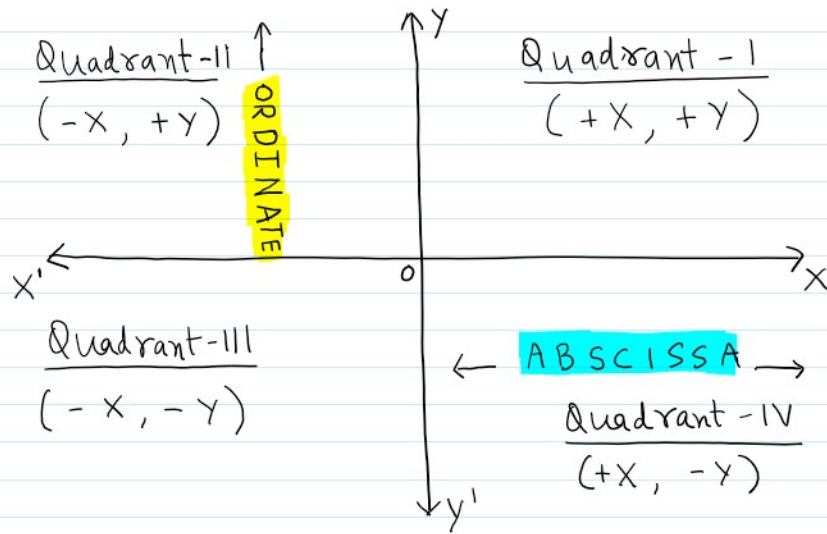 Y
Quadrant-II
(-X, +Y)
ORDINATE
Quadrant - I
(+X, +Y)
X'
O
X
Quadrant-III
(-X, -Y)
ABSCISSA
Quadrant-IV
(+X, -Y)
Y'